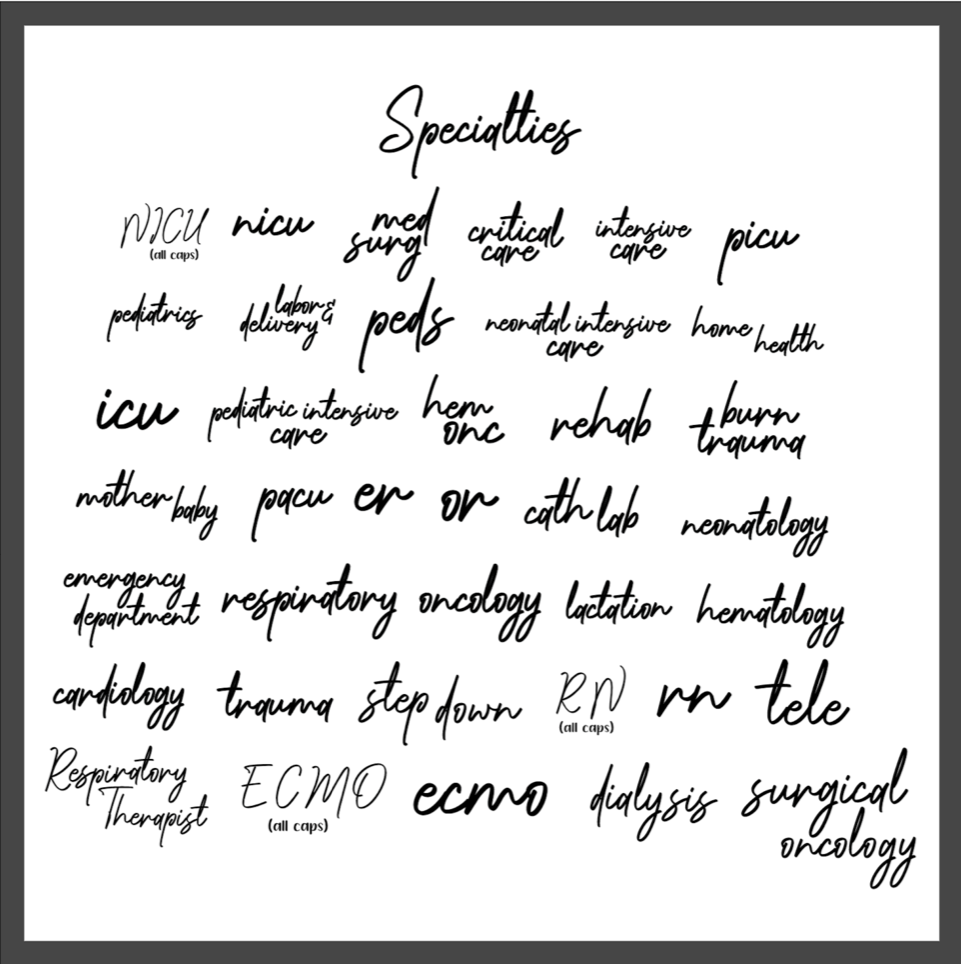 Specialties
NICU nicu med surg critical care intensive care picu
(all caps)
pediatrics labor & delivery peds neonatal intensive care home health
icu pediatric intensive care hem onc rehab burn trauma
mother baby pacu er or cath lab neonatology
emergency department respiratory oncology lactation hematology
cardiology trauma step down RN rn tele
(all caps)
Respiratory Therapist ECMO ecmo dialysis surgical oncology
(all caps)